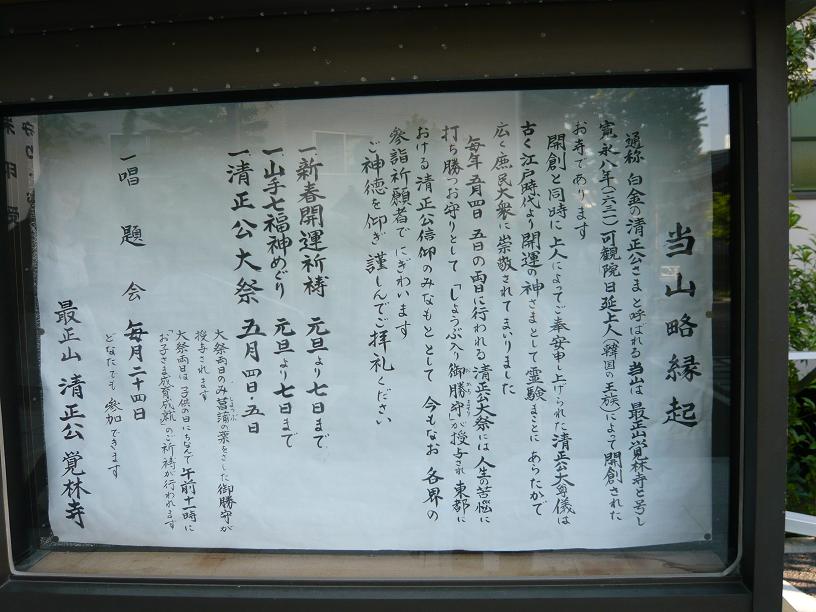 当山略縁起
通称 白金の清正公さまと呼ばれる当山は 最正山覚林寺と号し
寛永八年(一六三一)可観院日延上人(韓国の王族)によって開創された
お寺であります
開創と同時に 上人によってご奉安申し上げられた清正公大尊儀は
古く江戸時代より開運の神さまとして霊験まことに あらたかで
広く庶民大衆に崇敬されてまいりました
毎年五月四日 五日の両日に行われる清正公大祭には 人生の苦悩に
打ち勝つお守りとして「しょうぶ入り御勝守」が授与され 東都に
おける清正公信仰のみなもととして 今もなお 各界の
参詣祈願者でにぎわいます
ご神徳を仰ぎ 謹しんでご拝礼ください
一、新春開運祈祷 元旦より七日まで
一、山手七福神めぐり 元旦より七日まで
一、清正公大祭 五月四日・五日
大祭両日のみ菖蒲の葉をさした御勝守が
授与されます
大祭両日は 子供の日にちなんで 午前十一時に
「お子さま成育成就」のご祈祷が行われます
一、唱題会 毎月二十四日
どなたでも参加できます
最正山 清正公 覚林寺